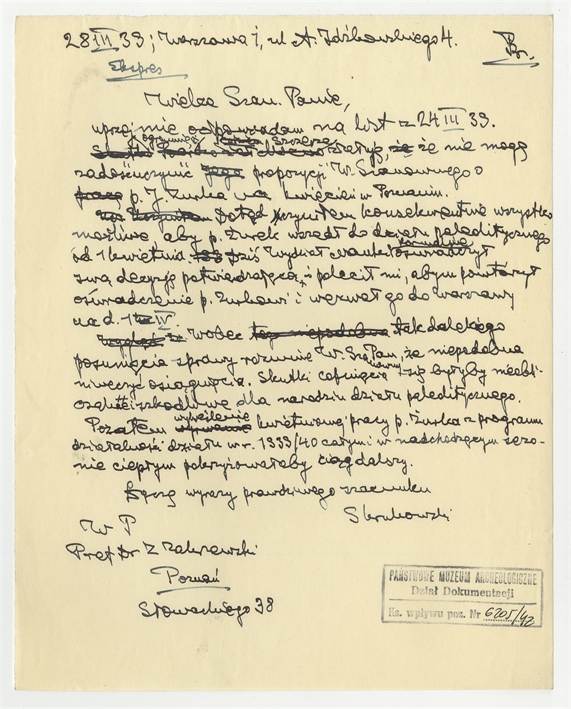 28 III 39; Warszawa 1, ul A. Idźkowskiego 4.
Br.
Ekspres
Wielce Szan. Panie,
uprzejmie odpowiadam na list z 24 III 39.
z ogromnym szczerze
żałuję, że nie mogę
zadośćuczynić propozycji W. Szanownego o
pracę p. J. Żurka na kwiecień w Poznaniu.
Dotąd czyniłem konsekwentnie wszystko
możliwe aby p. Żurek wszedł do działu paleolitycznego
od 1 kwietnia dziś Wydział Nauki formalnie oświadczył
swą decyzję potwierdzającą i polecił mi, abym powtórzył
oświadczenie p. Żurkowi i wezwał go do Warszawy
na d. 1 IV.
wobec tak dalekiego
posunięcia sprawy rozumie W. Sza Pan, że niepodobna
niweczyć osiągnięcia. Skutki cofnięcia się byłyby nieobli-
czalne i szkodliwe dla narodzin działu paleolitycznego.
Pozatem wykreślenie kwietniowej pracy p. Żurka z programu
działalności działu w r. 1939/40 całym i w nadchodzącym sezo-
nie ciepłym pokrzyżowałaby ciąg dalszy.
Łączę wyrazy prawdziwego szacunku
S Krukowski
W P
Prof Dr Z Zakrzewski
Poznań
Słowackiego 38
PAŃSTWOWE MUZEUM ARCHEOLOGICZNE
Dział Dokumentacji
Ks. wpływu poz. Nr 6205/42